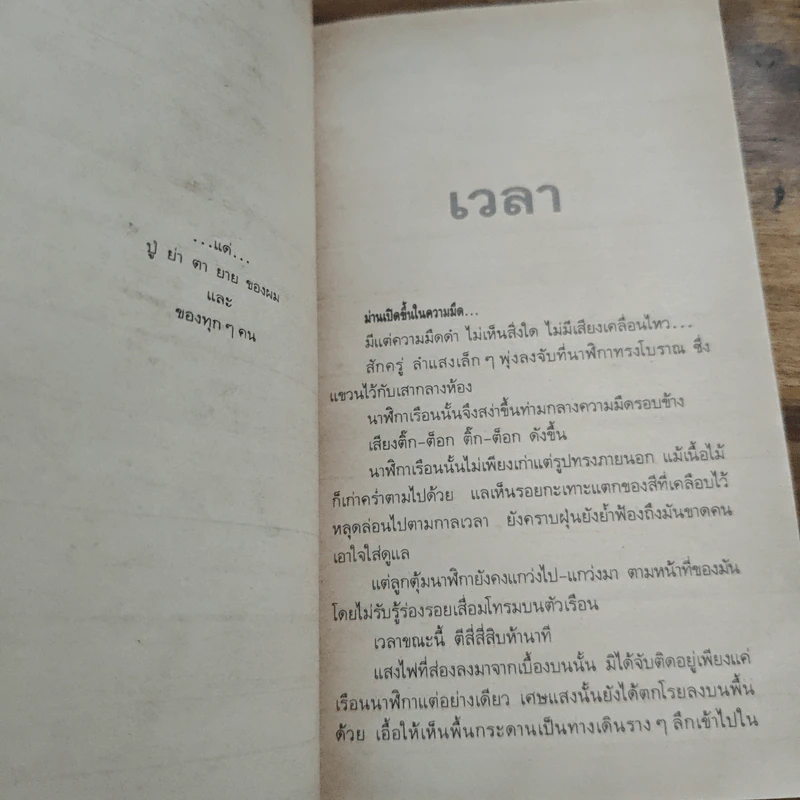 ...แด่...
ปู่ ย่า ตา ยาย ของผม
และ
ของทุกๆคน
เวลา
ม่านเปิดขึ้นในความมืด...
มีแต่ความมืดดำ ไม่เห็นสิ่งใด ไม่มีเสียงเคลื่อนไหว...
สักครู่ ลำแสงเล็กๆพุ่งลงจับที่นาฬิกาทรงโบราณ ซึ่ง
แขวนไว้กับเสากลางห้อง
นาฬิกาเรือนนั้นจึงสง่าขึ้นท่ามกลางความมืดรอบข้าง
เสียงติ๊ก-ต็อก ติ๊ก-ต็อก ดังขึ้น
นาฬิกาเรือนนั้นไม่เพียงเก่าแต่รูปทรงภายนอก แม้เนื้อไม้
ก็เก่าคร่ำตามไปด้วย แลเห็นรอยกะเทาะแตกของสีที่เคลือบไว้
หลุดล่อนไปตามกาลเวลา ยังคราบฝุ่นยังย้ำฟ้องถึงมันขาดคน
เอาใจใส่ดูแล
แต่ลูกตุ้มนาฬิกายังคงแกว่งไป-แกว่งมา ตามหน้าที่ของมัน
โดยไม่รับรู้ร่องรอยเสื่อมโทรมบนตัวเรือน
เวลาขณะนี้ ตีสี่สี่สิบห้านาที
แสงไฟที่ส่องลงมาจากเบื้องบนนั้น มิได้จับติดอยู่เพียงแค่
เรือนนาฬิกาแต่อย่างเดียว เศษแสงนั้นยังได้ตกโรยลงบนพื้น
ด้วย เอื้อให้เห็นพื้นกระดานเป็นทางเดินรางๆลึกเข้าไปใน